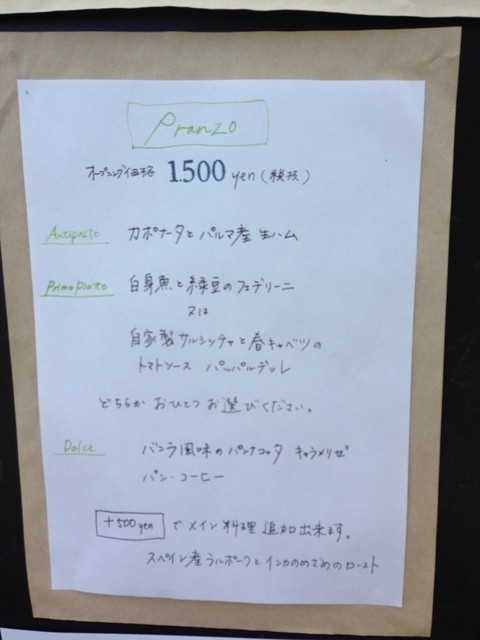 Pranzo
オープニング価格 1.500 yen (税抜)
Antipasto カポナータと パルマ産 生ハム
Primo Piatto 白身魚と緑豆のフェデリーニ
又は
自家製サルシッチャと春キャベツの
トマトソース パッパルデッレ
どちらか おひとつ お選びください。
Dolce バニラ風味のパンナコッタ キャラメリゼ
パン・コーヒー
+500yen で メイン料理 追加出来ます。
スペイン産ラルポークとインカのめざめのロースト